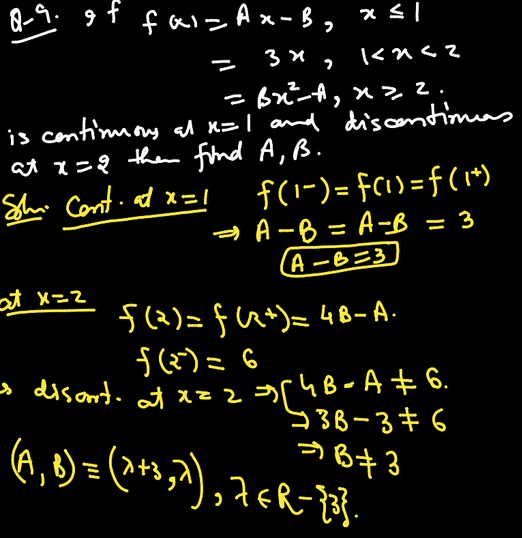 Q-9. If f(x) = Ax-B, x ≤ 1
= 3x, 1<x<2
= Bx²-A, x ≥ 2.
is continuous at x=1 and discontinuous
at x=2 then find A, B.
Soln. Cont. at x=1 f(1-) = f(1) = f(1+)
⇒ A-B = A-B = 3
A-B=3
at x=2
f(2) = f(2+) = 4B-A.
f(2-) = 6
discont. at x=2 ⇒ 4B-A ≠ 6.
→ 3B-3 ≠ 6
⇒ B ≠ 3
(A, B) ≡ (λ+3, λ), λ ∈ R-{3}.